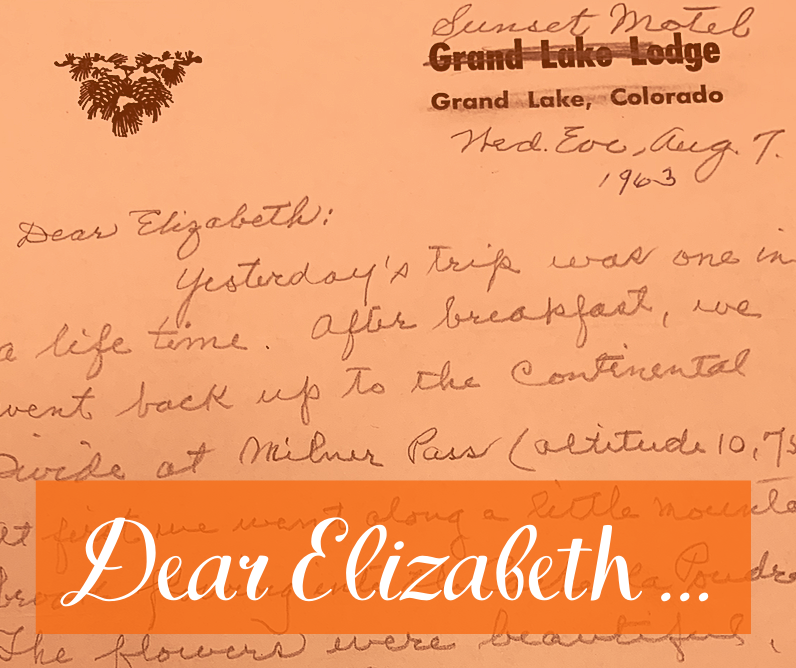 Sunset Motel
Grand Lake Lodge
Grand Lake, Colorado
Wed. Eve, Aug. 7.
1963
Dear Elizabeth:
Yesterday's trip was one in
a life time. After breakfast, we
went back up to the Continental
Divide at Milner Pass (altitude 10,75
at first we went along a little mounta
Dear Elizabeth ...
brook flowing into the la Poudre
The flowers were beautiful,